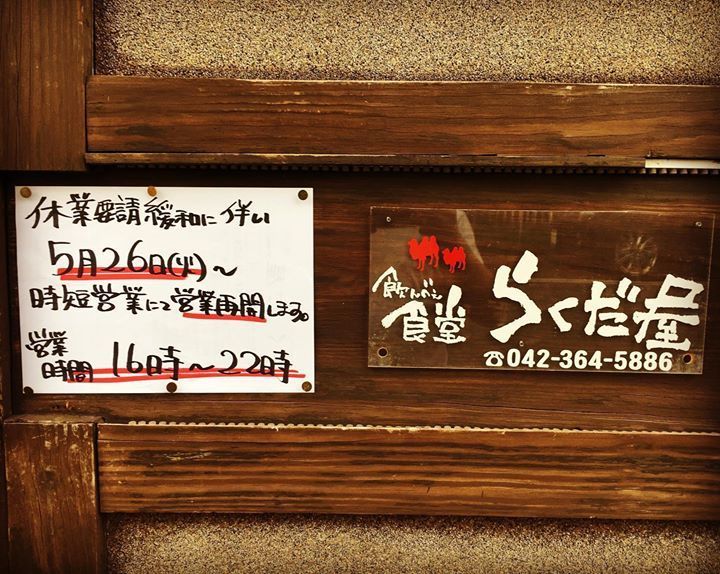 休業要請緩和に伴い
5月26日(火)～
時短営業にて営業再開します。
営業時間 16時～22時
食堂 らくだ屋
☎042-364-5886